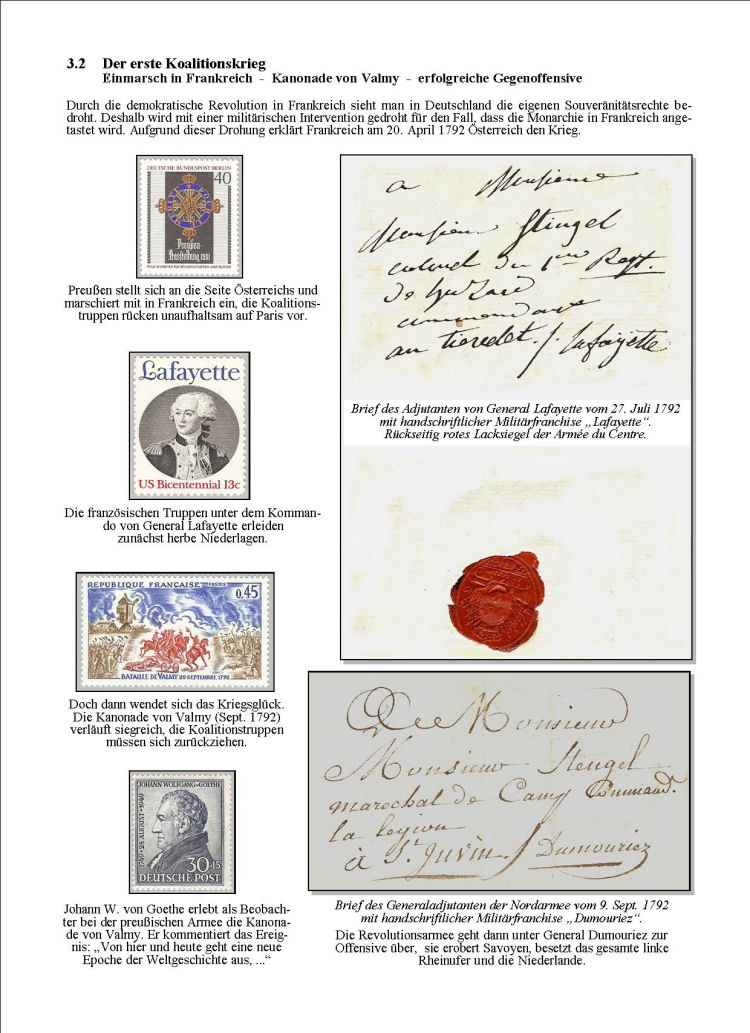 3.2 Der erste Koalitionskrieg
Einmarsch in Frankreich - Kanonade von Valmy - erfolgreiche Gegenoffensive
Durch die demokratische Revolution in Frankreich sieht man in Deutschland die eigenen Souveränitätsrechte be-
droht. Deshalb wird mit einer militärischen Intervention gedroht für den Fall, dass die Monarchie in Frankreich ange-
tastet wird. Aufgrund dieser Drohung erklärt Frankreich am 20. April 1792 Österreich den Krieg.
DEUTSCHE BUNDESPOST BERLIN
40
Preußen
Ausstellung 1981
Preußen stellt sich an die Seite Österreichs und
marschiert mit in Frankreich ein, die Koalitions-
truppen rücken unaufhaltsam auf Paris vor.
Lafayette
US Bicentennial 13c
Die französischen Truppen unter dem Komman-
do von General Lafayette erleiden
zunächst herbe Niederlagen.
REPUBLIQUE FRANÇAISE POSTES
0,45
BATAILLE DE VALMY 20 SEPTEMBRE 1792
Doch dann wendet sich das Kriegsglück.
Die Kanonade von Valmy (Sept. 1792)
verläuft siegreich, die Koalitionstruppen
müssen sich zurückziehen.
JOHANN WOLFGANG V. GOETHE
1749 · 28. AUGUST · 1949
30+15
DEUTSCHE POST
Johann W. von Goethe erlebt als Beobach-
ter bei der preußischen Armee die Kanona-
de von Valmy. Er kommentiert das Ereig-
nis: „Von hier und heute geht eine neue
Epoche der Weltgeschichte aus, ...“
a Monsieur
Monsieur Stingel
colonel du 1er Regt.
de huzard
commandant
au tieredet. / Lafayette
Brief des Adjutanten von General Lafayette vom 27. Juli 1792
mit handschriftlicher Militärfranchise „Lafayette“.
Rückseitig rotes Lacksiegel der Armée du Centre.
Monsieur
Monsieur Stengel
marechal de Camp Command.
la legion
à St Juvin / Dumouriez
Brief des Generaladjutanten der Nordarmee vom 9. Sept. 1792
mit handschriftlicher Militärfranchise „Dumouriez“.
Die Revolutionsarmee geht dann unter General Dumouriez zur
Offensive über, sie erobert Savoyen, besetzt das gesamte linke
Rheinufer und die Niederlande.